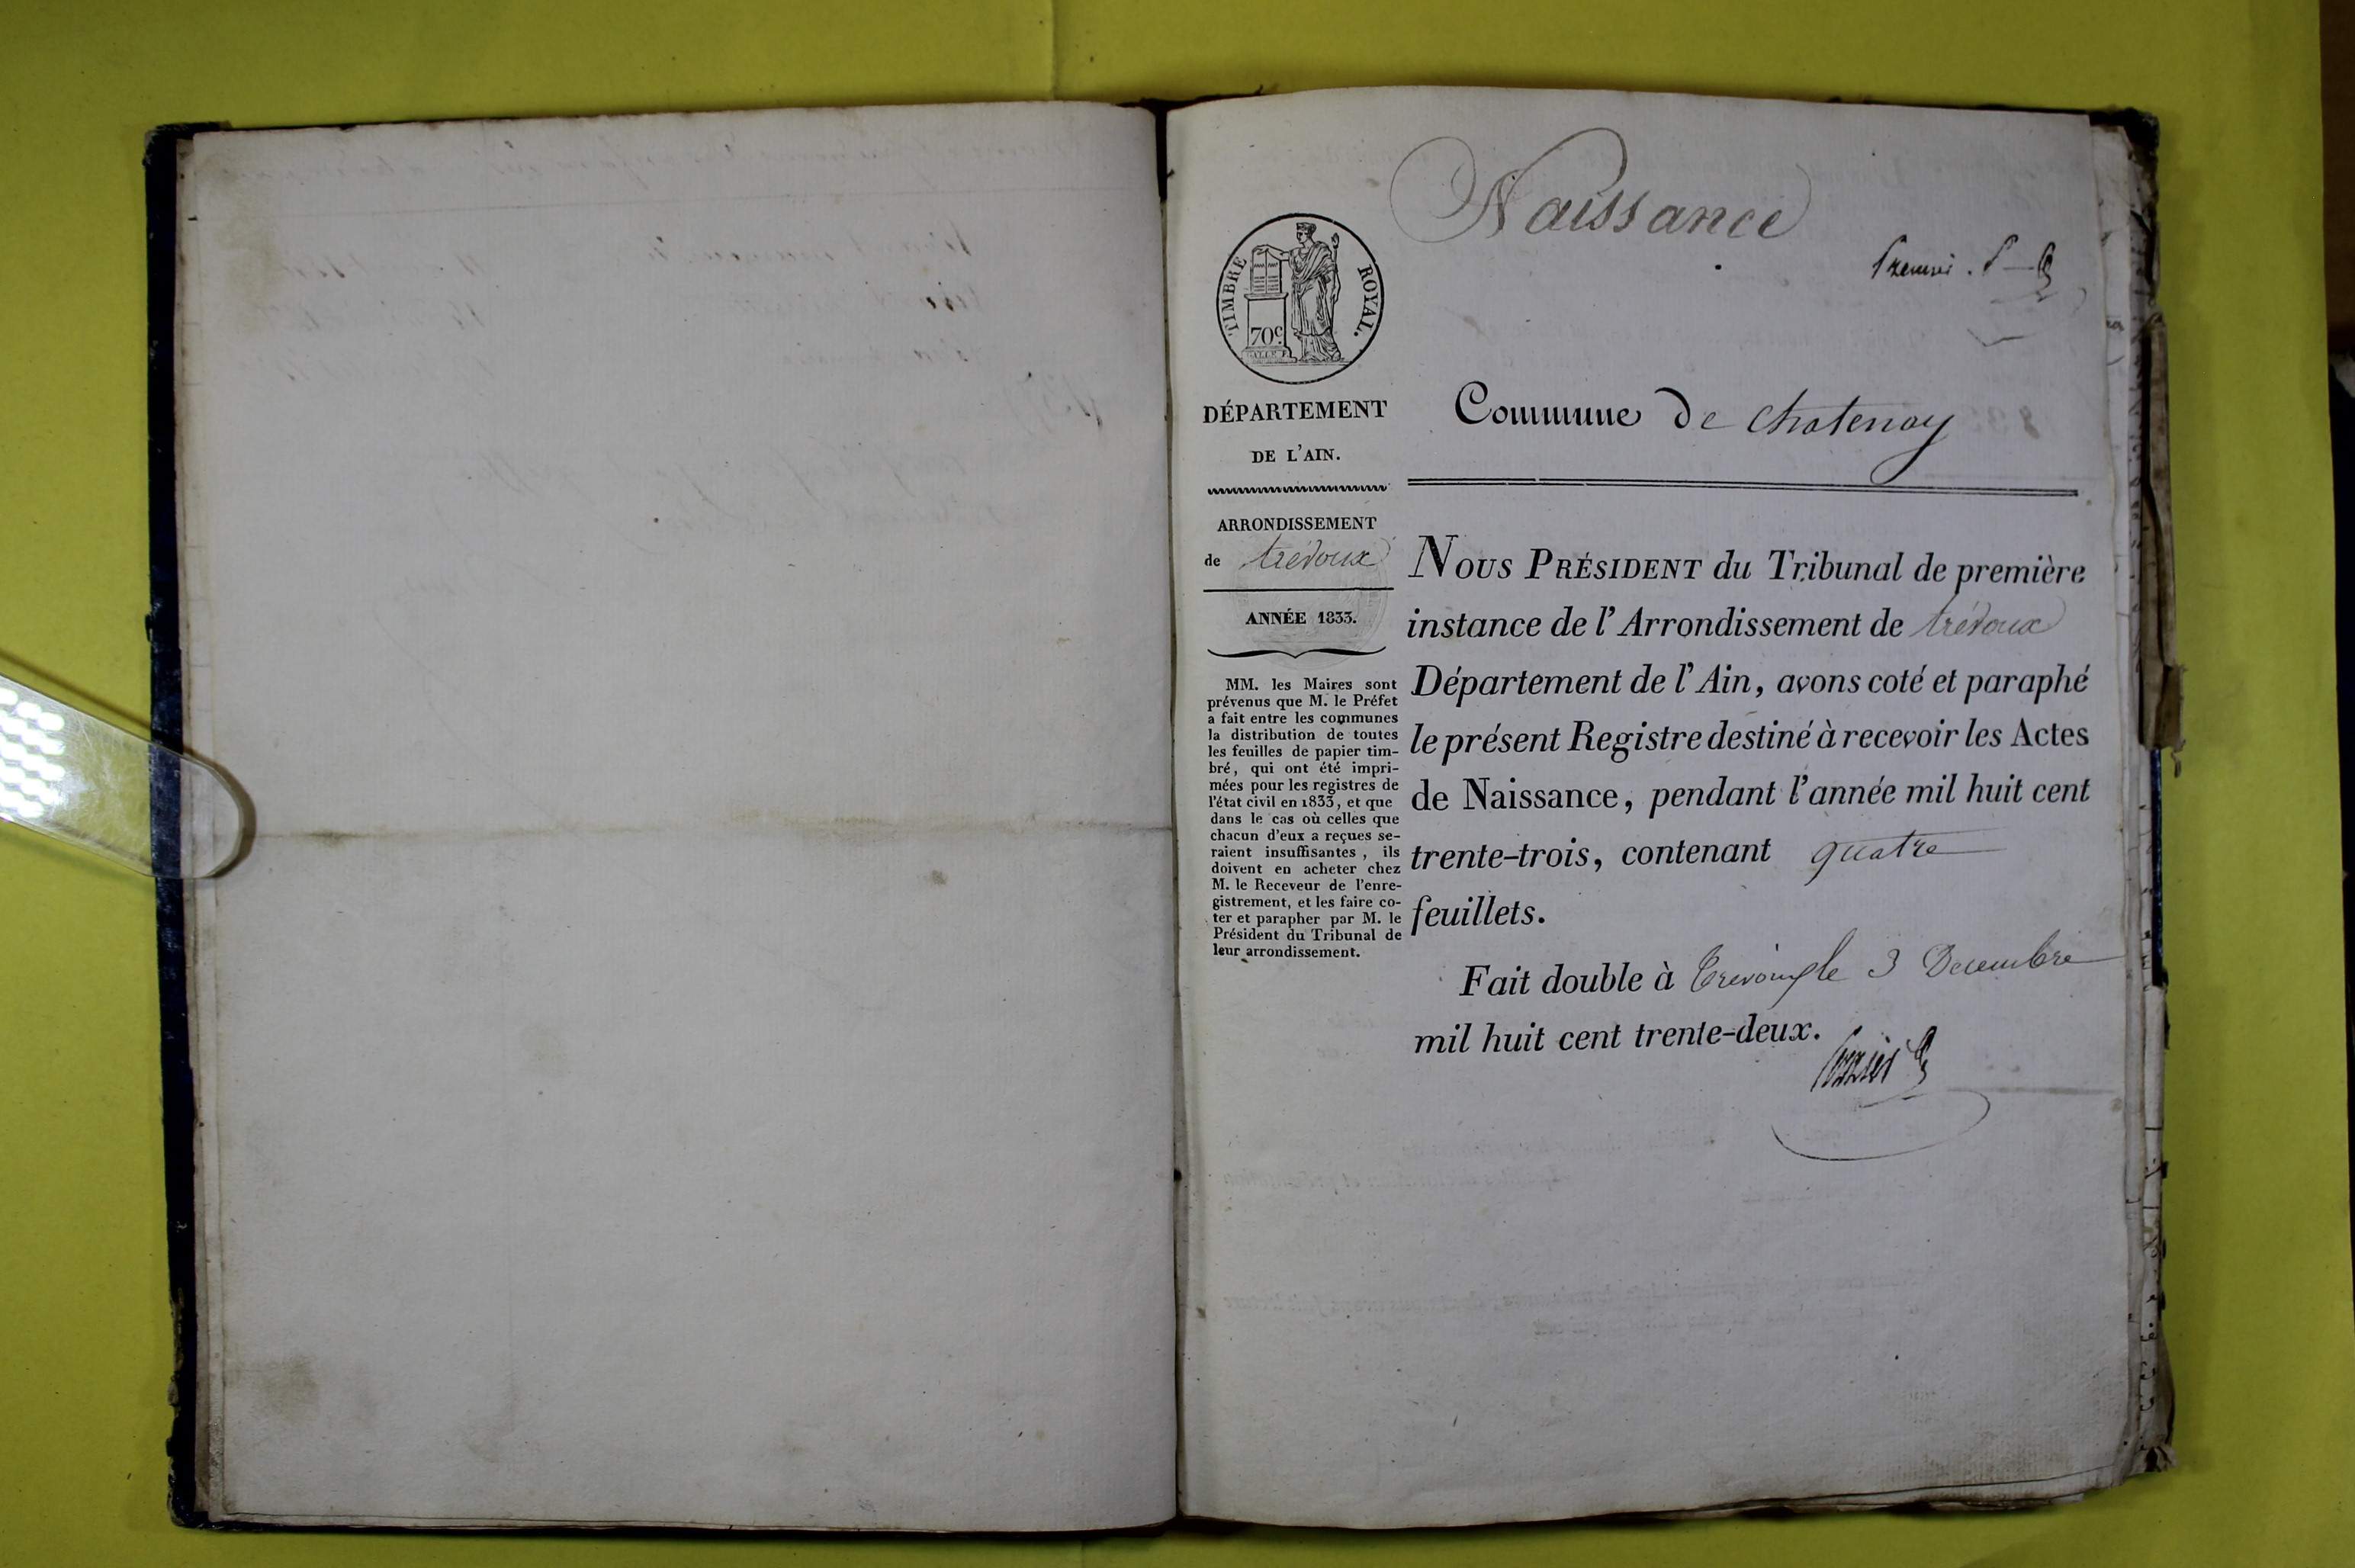 Naissance
TIMBRE ROYAL.
70c
DÉPARTEMENT
DE L'AIN.
Commune de chatenay
ARRONDISSEMENT
de trévoux
ANNÉE 1833.
MM. les Maires sont
prévenus que M. le Préfet
a fait entre les communes
la distribution de toutes
les feuilles de papier tim-
bré, qui ont été impri-
mées pour les registres de
l'état civil en 1833, et que
dans le cas où celles que
chacun d'eux a reçues se-
raient insuffisantes, ils
doivent en acheter chez
M. le Receveur de l'enre-
gistrement, et les faire co-
ter et parapher par M. le
Président du Tribunal de
leur arrondissement.
NOUS PRÉSIDENT du Tribunal de première
instance de l'Arrondissement de trévoux
Département de l'Ain, avons coté et paraphé
le présent Registre destiné à recevoir les Actes
de Naissance, pendant l'année mil huit cent
trente-trois, contenant quatre
feuillets.
Fait double à Trevoux le 3 Decembre
mil huit cent trente-deux.